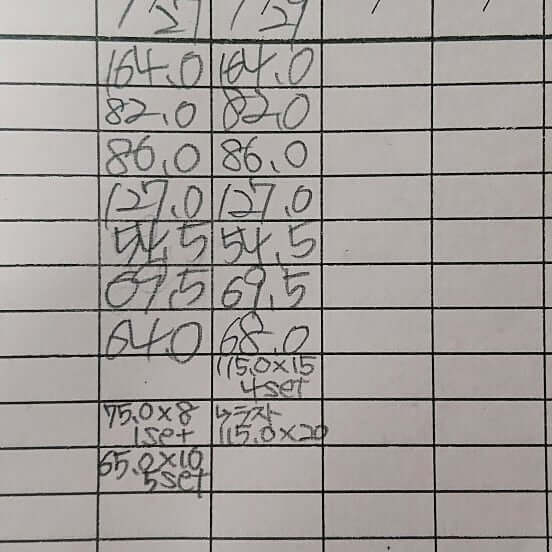 /27 /29
164.0 164.0
82.0 82.0
86.0 86.0
127.0 127.0
54.5 54.5
69.5 69.5
64.0 68.0
115.0×15
4set
75.0×8 ラスト
1set 115.0×20
65.0×10
5set